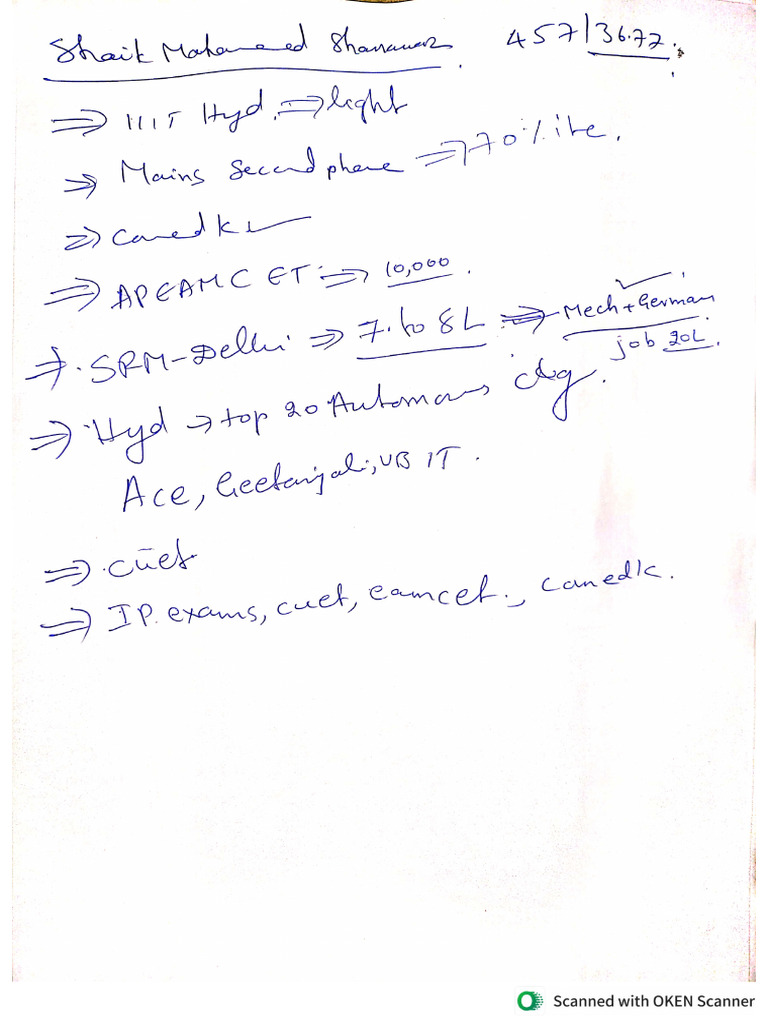 Shaik Mohamed Shanawaz. 457/36.77.
⇒ IIIT Hyd. ⇒ light
⇒ Mains Second phase ⇒ 70%ile.
⇒ Comedk
⇒ APEAMCET: ⇒ 10,000.
⇒ SRM-Delhi ⇒ 7. to 8L ⇒ Mech + German
job 20L.
⇒ Hyd → top 20 Autonomous clg.
Ace, Geetanjali, VBIT.
⇒ cuet
⇒ IP. exams, cuet, eamcet., comedk.
Scanned with OKEN Scanner